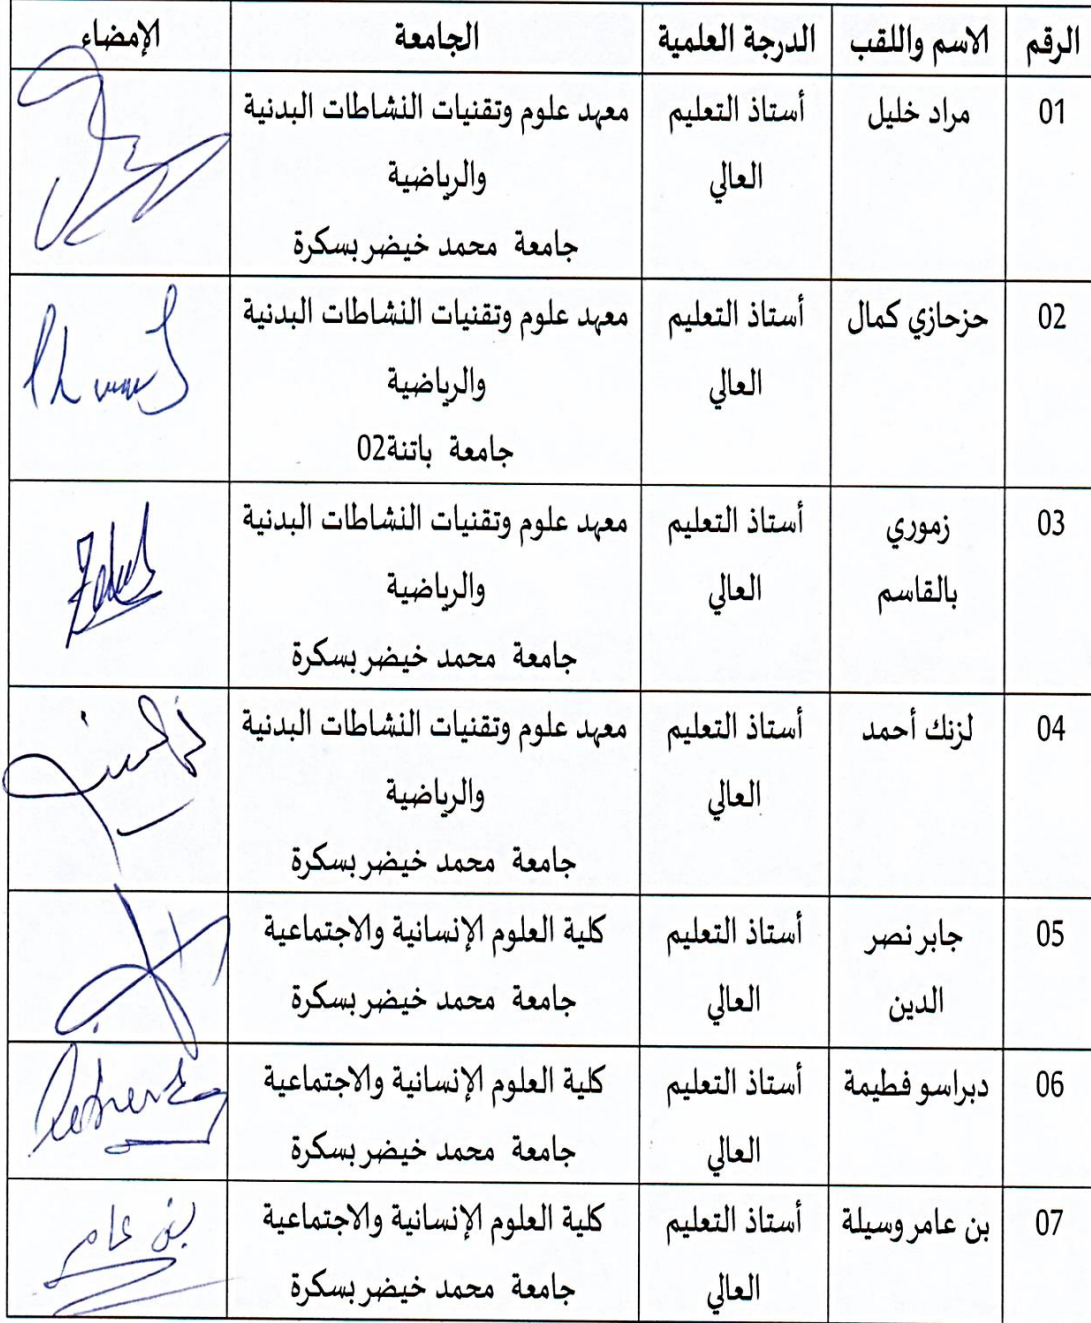 الرقم الاسم واللقب الدرجة العلمية الجامعة الإمضاء
01 مراد خليل أستاذ التعليم معهد علوم وتقنيات النشاطات البدنية
العالي والرياضية
جامعة محمد خيضر بسكرة
02 حزحازي كمال أستاذ التعليم معهد علوم وتقنيات النشاطات البدنية
العالي والرياضية
جامعة باتنة02
03 زموري أستاذ التعليم معهد علوم وتقنيات النشاطات البدنية
بالقاسم العالي والرياضية
جامعة محمد خيضر بسكرة
04 لزنك أحمد أستاذ التعليم معهد علوم وتقنيات النشاطات البدنية
العالي والرياضية
جامعة محمد خيضر بسكرة
05 جابر نصر أستاذ التعليم كلية العلوم الإنسانية والاجتماعية
الدين العالي جامعة محمد خيضر بسكرة
06 دبراسو فطيمة أستاذ التعليم كلية العلوم الإنسانية والاجتماعية
العالي جامعة محمد خيضر بسكرة
07 بن عامر وسيلة أستاذ التعليم كلية العلوم الإنسانية والاجتماعية بن عامر
العالي جامعة محمد خيضر بسكرة